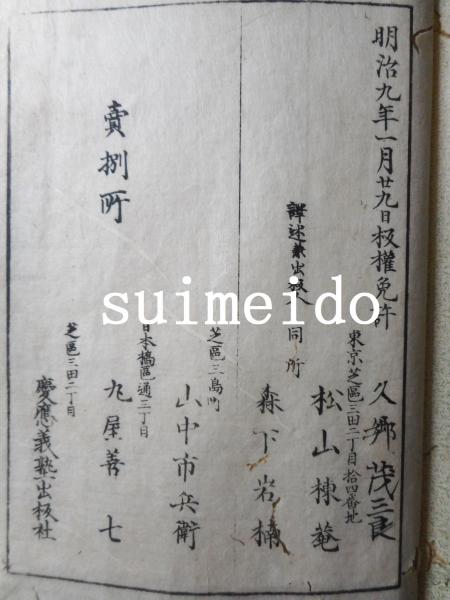 明治九年一月廿九日板權免許
久郷茂三良
東京芝區三田二丁目拾四番地
松山棟菴
譯述兼出板人
同所
森下岩楠
芝區三島町
山中市兵衛
日本橋區通三丁目
賣捌所
丸屋善七
芝區三田二丁目
慶應義塾出板社
suimeido